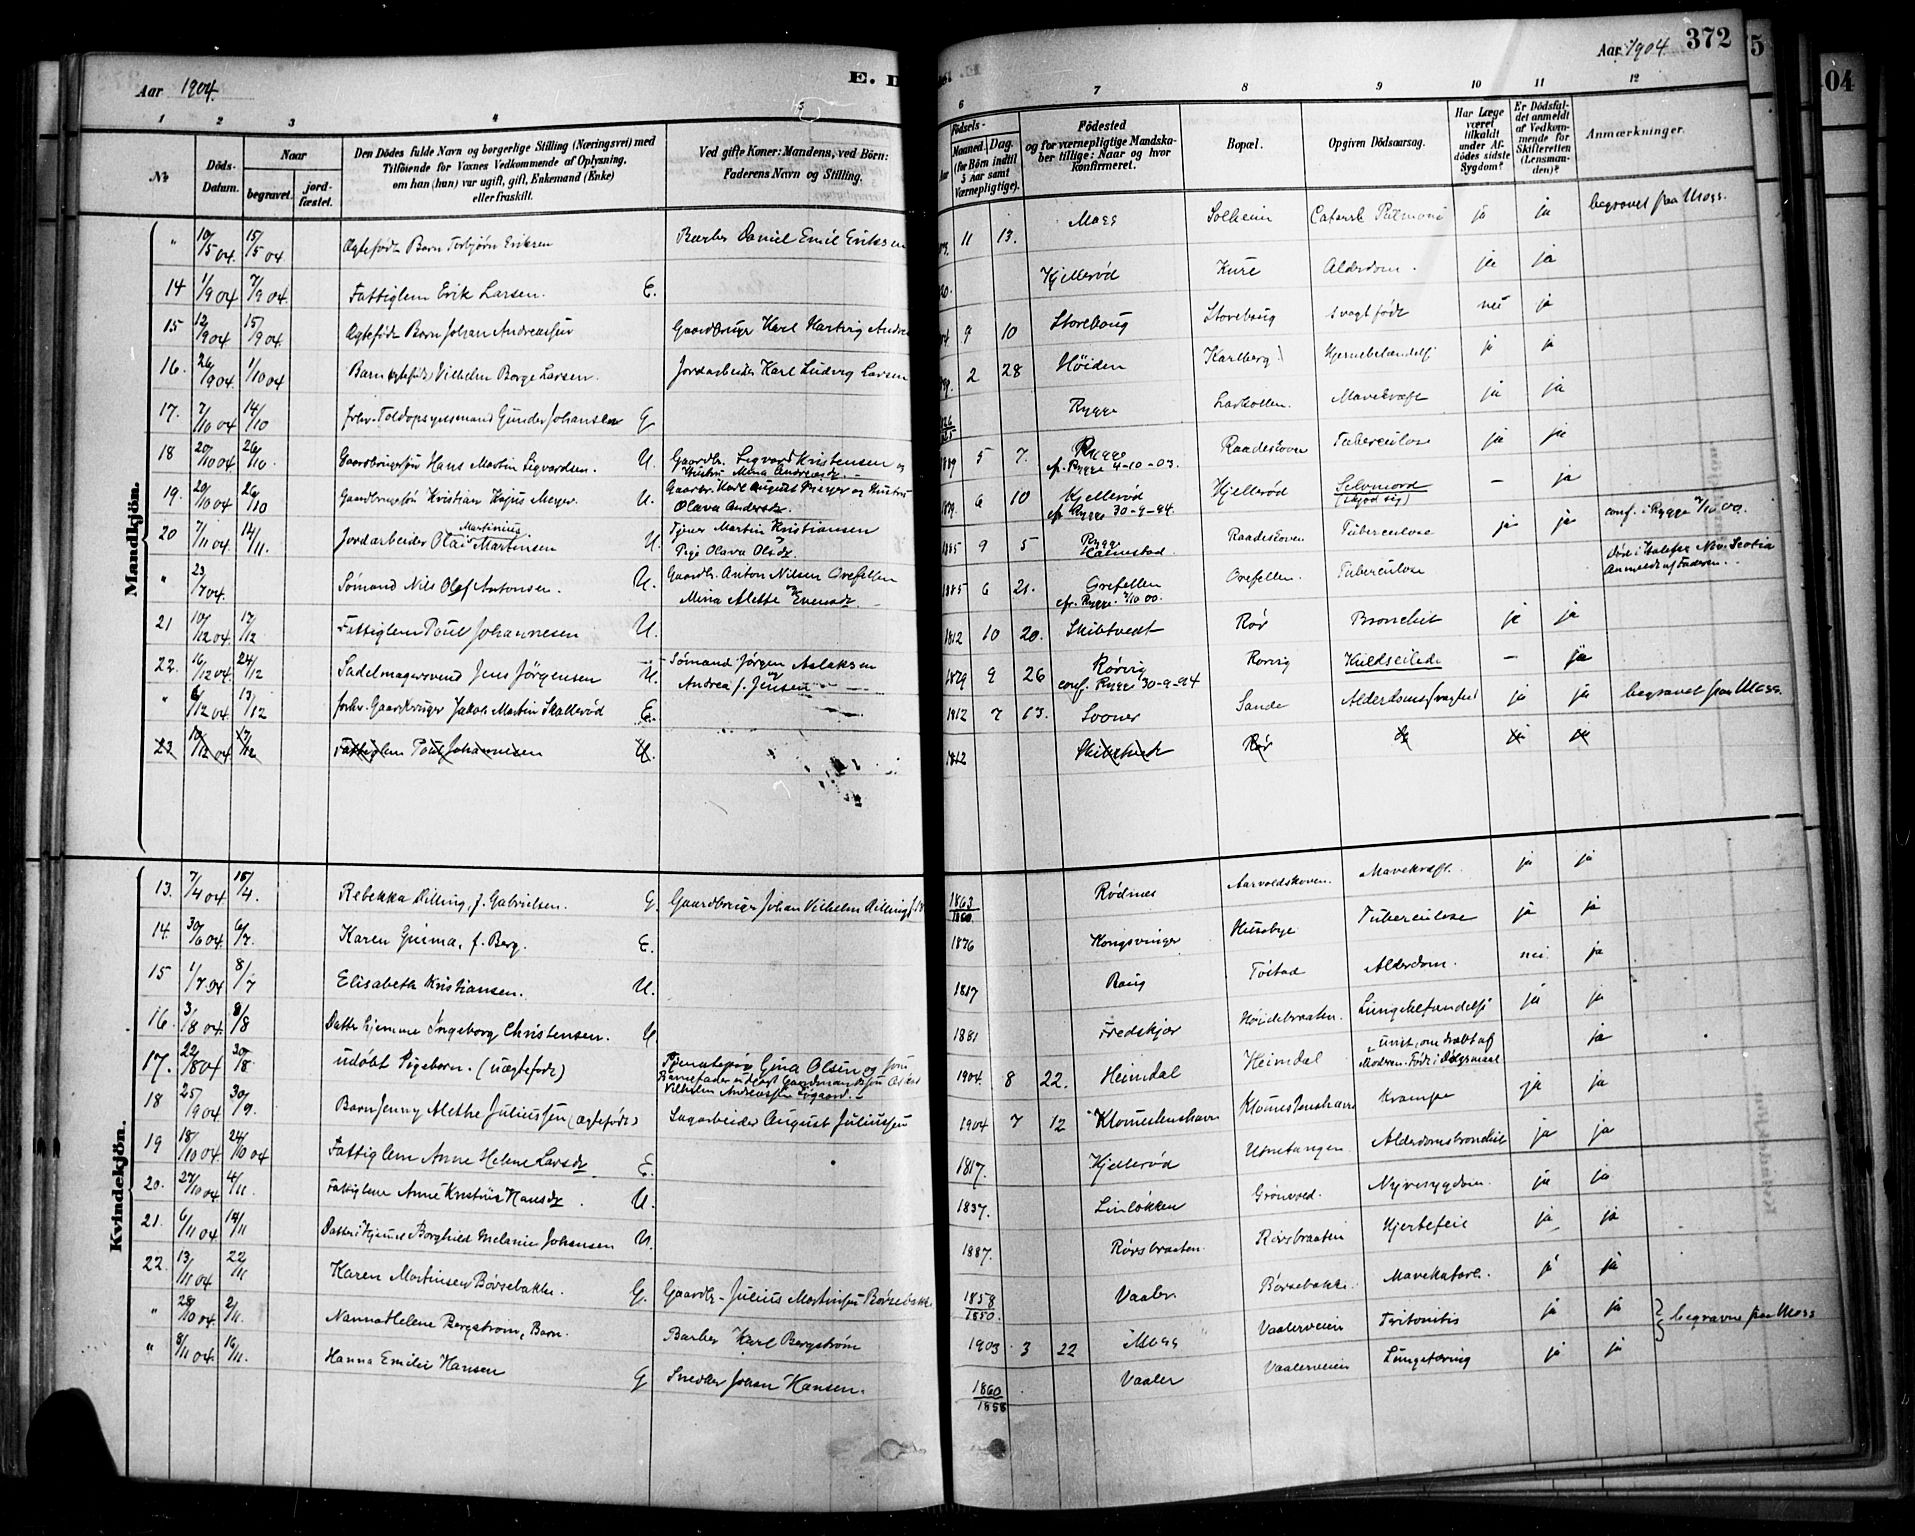 Aar 1904. E. D
Aar 1904. 372
1 2 3 4 5 6 7 8 9 10 11 12
No
Döds-Datum.
Naar
begravet.
jord-fæstet.
Den Dödes fulde Navn og borgerlige Stilling (Næringsvei) med
Tilföiende for Voxnes Vedkommende af Oplysning,
om han (hun) var ugift, gift, Enkemand (Enke)
eller fraskilt.
Ved gifte Koner: Mandens, ved Börn:
Faderens Navn og Stilling.
Födsels-
Aar Maaned. Dag.
(for Börn indtil 5 Aar samt Værnepligtige).
Födested
og for værnepligtige Mandska-
ber tillige: Naar og hvor
konfirmeret.
Bopæl.
Opgiven Dödsaarsag.
Har Læge været tilkaldt under Afdödes sidste Sygdom?
Er Dödsfaldet anmeldt af Vedkommende for Skifteretten (Lensmanden)?
Anmærkninger.
Mandkjön.
" 10/5 04. 15/5 04 Ægtefødt Barn Torbjørn Eriksen Barber Daniel Emil Eriksen 11 13. Moss Solheim Catarrh Pulmon ja ja begravet fra Moss.
14 1/9 04 7/9 04. Fattiglem Erik Larsen. E. Kjellerød Kure Alderdom. ja ja
15 12/9 04 15/9 04. Ægtefødt Barn Johan Andreassen Gaardbruger Karl Hartvig Andre 9 10 Storebaug Storebaug svagt født nei ja
16. 26/9 04 1/10 04 Barn (ægtefødt) Vilhelm Borge Larsen. Jordarbeider Karl Ludvig Larsen 2 28 Høiden Karlberg Hjernebetændelse ja ja
17. 7/10 04 14/10 forhv. Toldopsynsmand Gunder Johansen G Rygge Larkollen. Mavekræft ja ja
18 20/10 04 26/10. Gaardbrugersøn Hans Martin Sigvardsen. U. Gaardbr. Sigvard Kristensen og
Hustru Mina Andreasd. 1889 5 7. Rygge Raadeskoven Tuberculose ja ja
cf. Rygge 4-10-03.
19. 20/10 04 26/10 Gaardbrugersøn Kristian Kajus Meyer U. Gaardbr. Karl August Meyer og Hustru
Olava Andersd. 6 10 Kjellerød Kjellerød Selvmord (skjød sig) – ja
cf. Rygge 30-9-94.
20 7/11 04 14/11. Jordarbeider Olai Martinius Martinsen U. Tjener Martin Kristiansen
Pige Olava Olsd. 1885 9 5 Rygge Halmstad Raadeskoven Tuberculose ja ja conf. i Rygge 7/10 00.
" 23/7 04. Sømand Nils Olaf Antonsen. U. Gaardbr. Anton Nilsen Orefellen
og Mina Alette Evensd. 1885 6 21. Orefellen Orefellen. Tuberculose Død i Halifax Nov. Scotia
cf. Rygge 7/10 00. Anmeldt af Faderen.
21 10/12 04 17/12 Fattiglem Poul Johannesen U. 1812 10 20. Skibtvedt Rør Bronchit ja ja
22. 16/12 04. 24/12 Sadelmagersvend Jens Jørgensen U. Sømand Jørgen Aslaksen
og Andrea f. Jensen 1879 9 26 Rørvig Rørvig Kuldseilede – ja
conf. Rygge 30-9-94
" 6/12 04. 13/12 forhv. Gaardbruger Jakob Martin Skallerød E. 1812 7 13. Sooner Sande Alderdomssvaghed ja ja begravet fra Moss.
23 10/12 04 17/12 Fattiglem Poul Johannesen U. 1812 Skibtvedt Rør ja ja
Kvindekjön.
13. 7/4 04 15/4. Rebekka Dilling, f. Gabrielsen. G. Gaardbruger Johan Vilhelm Dilling 1863/1860 Rødnes Aarvoldskoven. Mavekræft. ja ja
14. 30/6 04 6/7. Karen Guima, f. Berg. E. 1876 Kongsvinger Husebye Tuberculose ja ja
15 1/7 04 8/7 Elisabeth Kristiansen. U. 1817 Baug Tøstad Alderdom. nei ja
16. 3/8 04 8/8 Datter hjemme Ingeborg Christensen. U 1881 Fredskjær Høidebraaten. Lungebetændelse ja ja
17. 22/8 04 30/8. udøbt Pigebarn. (uægtefødt) Tjenestepige Gina Olsen og som
Barnefader udlagt Gaardmandssøn Oskar
Vilhelm Andreassen Sogaard. 1904. 8 22. Heimdal Heimdal uvist, om dræbt af
Moderen. Født i Dølgsmaal ja
18 25/9 04 30/9. Barn Jenny Alethe Juliussen (ægtefødt) Sagarbeider August Juliussen 1904 7 12 Klomestenshavn Klomestenshavn Krampe ja ja
19 18/10 04 24/10 04 Fattiglem Anne Helene Larsd. E. 1817. Kjellerød Urnetangen Alderdomsbronchit ja ja
20. 27/10 04 4/11. Fattiglem Anne Kristine Hansd. U. 1837. Linløkken Grønvold. Nyresygdom. ja ja
21. 6/11 04 12/11 Datter i Hjemmet Borghild Melanie Johansen U. 1887. Rørsbraaten. Rørsbraaten Hjertefeil ja ja
22. 13/11 04 22/11 Karen Martinsen Børsebakke. G. Gaardbr. Julius Martinsen Børsebakke 1858/1850. Vaaler Børsebakke. Mavekatarr. ja ja
" 28/10 04 2/11. Nanna Helene Bergstrøm, Barn. Barber Karl Bergstrøm 1903. 3 22 Moss Vaalerveien Peritonitis ja ja } begravne fra Moss
" 8/11 04. 16/11. Hanna Emilie Hansen G Snedker Johan Hansen. 1860/1858 Vaaler Vaalerveien Lungetæring ja ja
5
04